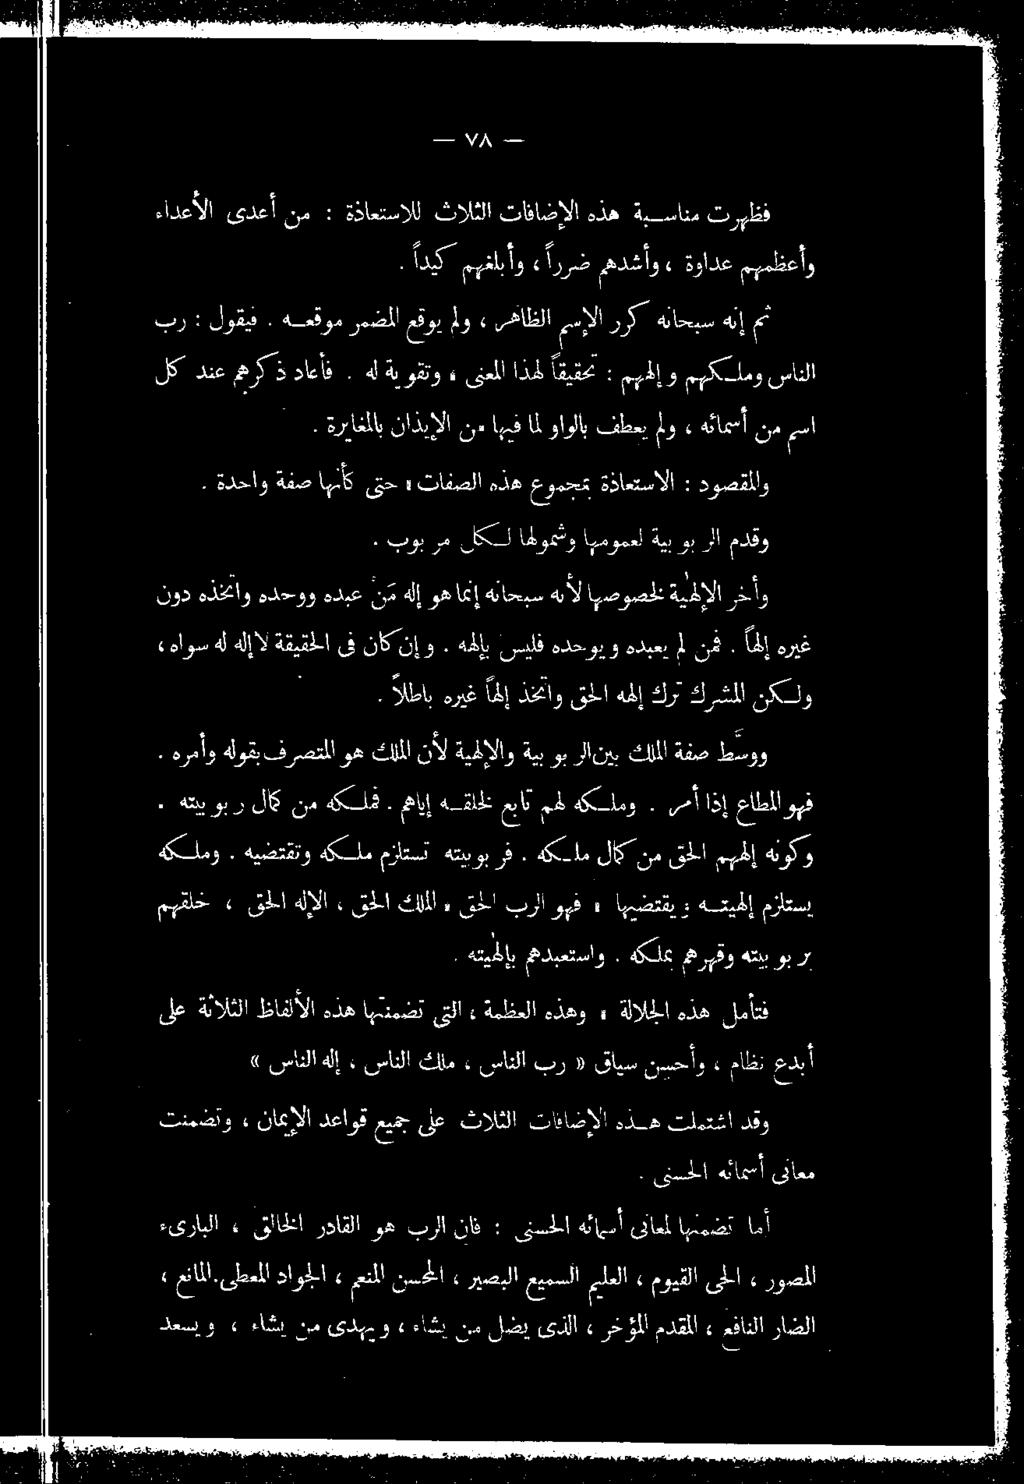 — ٧٨ —
فظهرت مناسبة هذه الإضافات الثلاث للاستعاذة : من أعدى الأعداء
وأعظمهم عداوة ، وأشدهم ضرراً ، وأبلغهم كيداً .
ثم إنه سبحانه كرر الإسم الظاهر ، ولم يوقع المضمر موقعه . فيقول : رب
الناس وملكهم وإلههم : تحقيقاً لهذا المعنى ، وتقوية له . فأعاد ذكرهم عند كل
اسم من أسمائه ، ولم يعطف بالواو لما فيها من الإيذان بالمغايرة .
والمقصود : الاستعاذة بمجموع هذه الصفات ، حتى كأنها صفة واحدة .
وقدم الربوبية لعمومها وشمولها لكل مربوب .
وأخر الإلهية لخصوصها لأنه سبحانه إنما هو إله مَنْ عبده ووحده واتخذه دون
غيره إلهاً . فمن لم يعبده ويوحده فليس بإلهه . وإن كان فى الحقيقة لا إله له سواه ،
ولكن المشرك ترك إلهه الحق واتخذ إلهاً غيره باطلاً .
ووسَّط صفة الملك بين الربوبية والإلهية لأن الملك هو المتصرف بقوله وأمره .
فهو المطاع إذا أمر . وملكه لهم تابع لخلقه إياهم . فملكه من كمال ربوبيته .
وكونه إلههم الحق من كمال ملكه . فربوبيته تستلزم ملكه وتقتضيه . وملكه
يستلزم إلهيته ويقتضيها ، فهو الرب الحق ، الملك الحق ، الإله الحق ، خلقهم
بربوبيته وقهرهم بملكه . واستعبدهم بإلهيته .
فتأمل هذه الجلالة ، وهذه العظمة ، التى تضمنتها هذه الألفاظ الثلاثة على
أبدع نظام ، وأحسن سياق « رب الناس ، ملك الناس ، إله الناس »
وقد اشتملت هذه الإضافات الثلاث على جميع قواعد الإيمان ، وتضمنت
معانى أسمائه الحسنى .
أما تضمنها لمعانى أسمائه الحسنى : فان الرب هو القادر الخالق ، البارىء
المصور ، الحى القيوم ، العليم السميع البصير ، المحسن المنعم ، الجواد المعطى . المانع ،
الضار النافع ، المقدم المؤخر ، الذى يضل من يشاء ، ويهدى من يشاء ، ويسعد